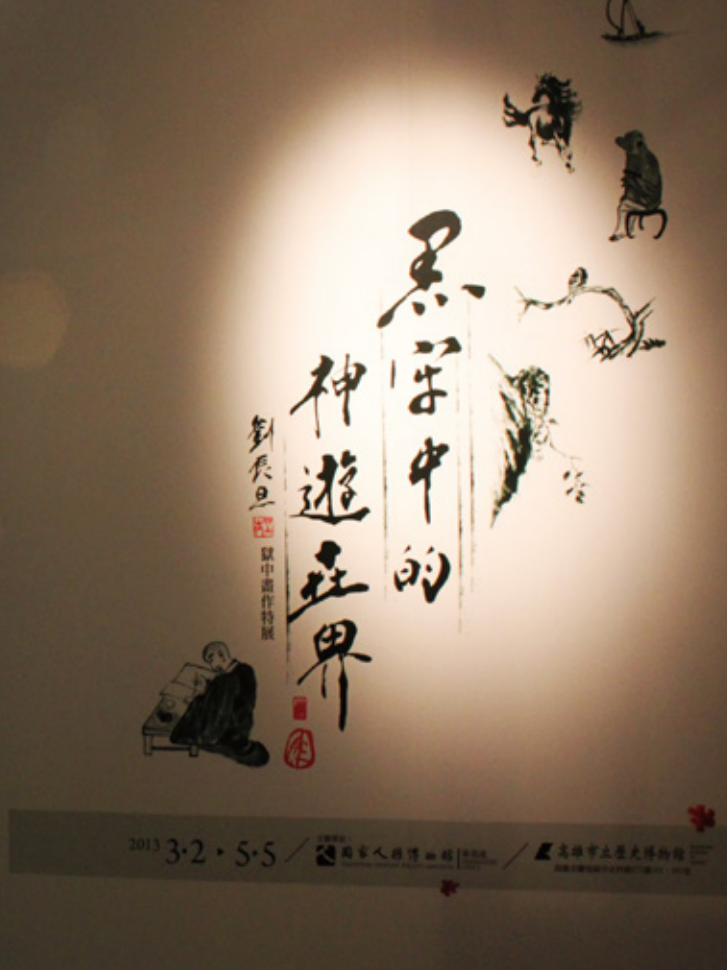 黑牢中的
神遊世界
劉辰旦
獄中畫作特展
2013 3·2 ▸ 5·5 / 國家人權博物館 / 高雄市立歷史博物館